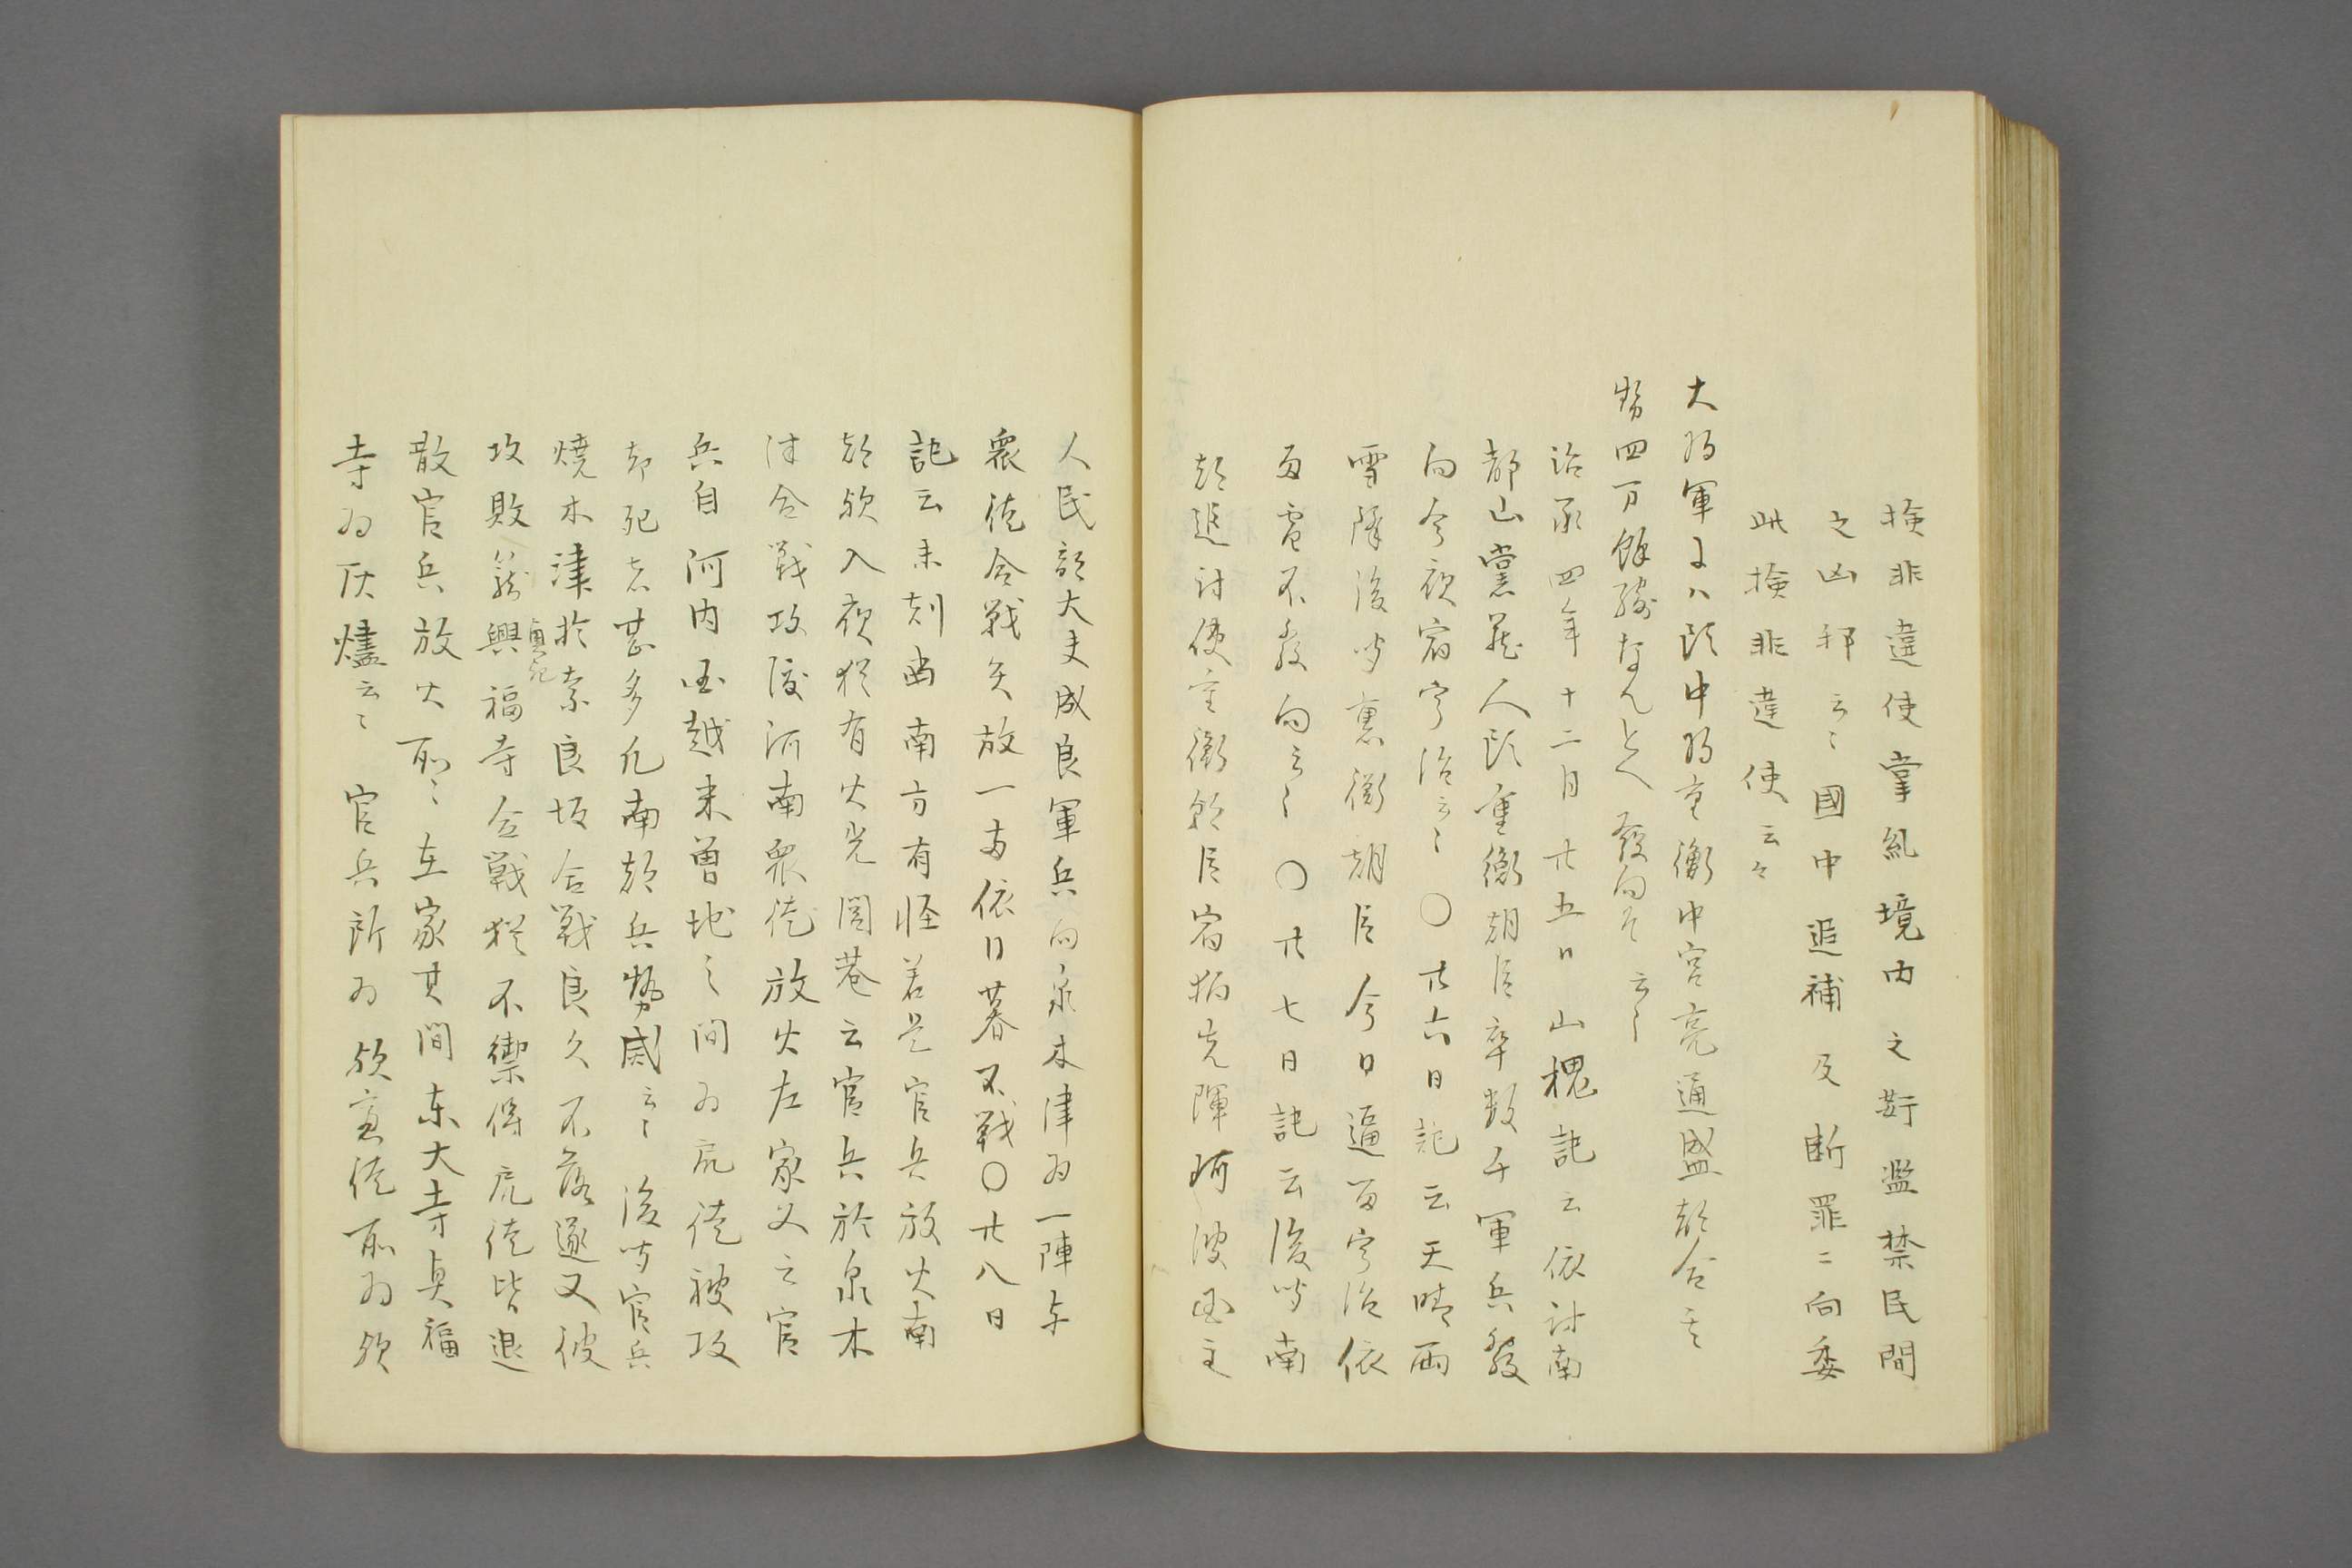 検非違使掌糺境内之姧濫禁民間
之凶邪云〻國中追補及断罪ニ向委
此検非違使云々
大将軍にハ頭中将重衡中宮亮通盛都合其
勢四万餘騎なんとへ發向す云〻
治承四年十二月廿五日山槐記云依討南
都山党蔵人頭重衡朝臣率数千軍兵發
向今夜宿宇治云〻〇廿六日記云天晴雨
雪降後聞裏衡朝臣今日逼留宇治依
雨雪不發向云〻〇廿七日記云後聞南
都追討使重衡朝臣宿狛先陣阿波国主
人民部大夫成良軍兵向泉木津為一陣与
衆徒合戦矢放一両依日暮不戦〇廿八日
記云未剋當南方有怪若是官兵放火南
都欤入夜猶有火光閭巷云官兵於泉木
津合戦攻渡河南衆徒放火在家又云官
兵自河内国越来曽地之間為凶徒被攻
却死者甚多凡南都兵勢盛云〻後聞官兵
焼木津於奈良坂合戦良久不落遂又彼
攻敗籠興福寺合戦猶不禦得凶徒皆退
散官兵放火所〻在家其間東大寺興福
寺為灰燼云〻官兵所為欤悪徒所為欤